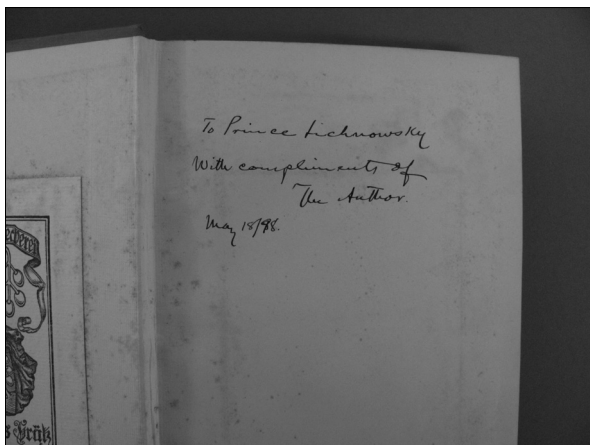 To Prince Lichnowsky
With compliments of
The Author.
May 18/98.